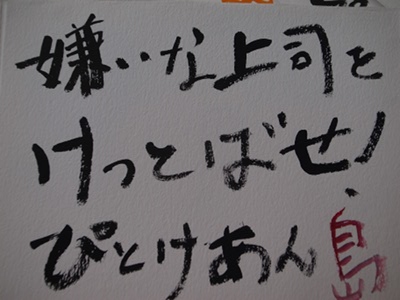 嫌いな上司を
けっとばせ!
ぴとけあん島